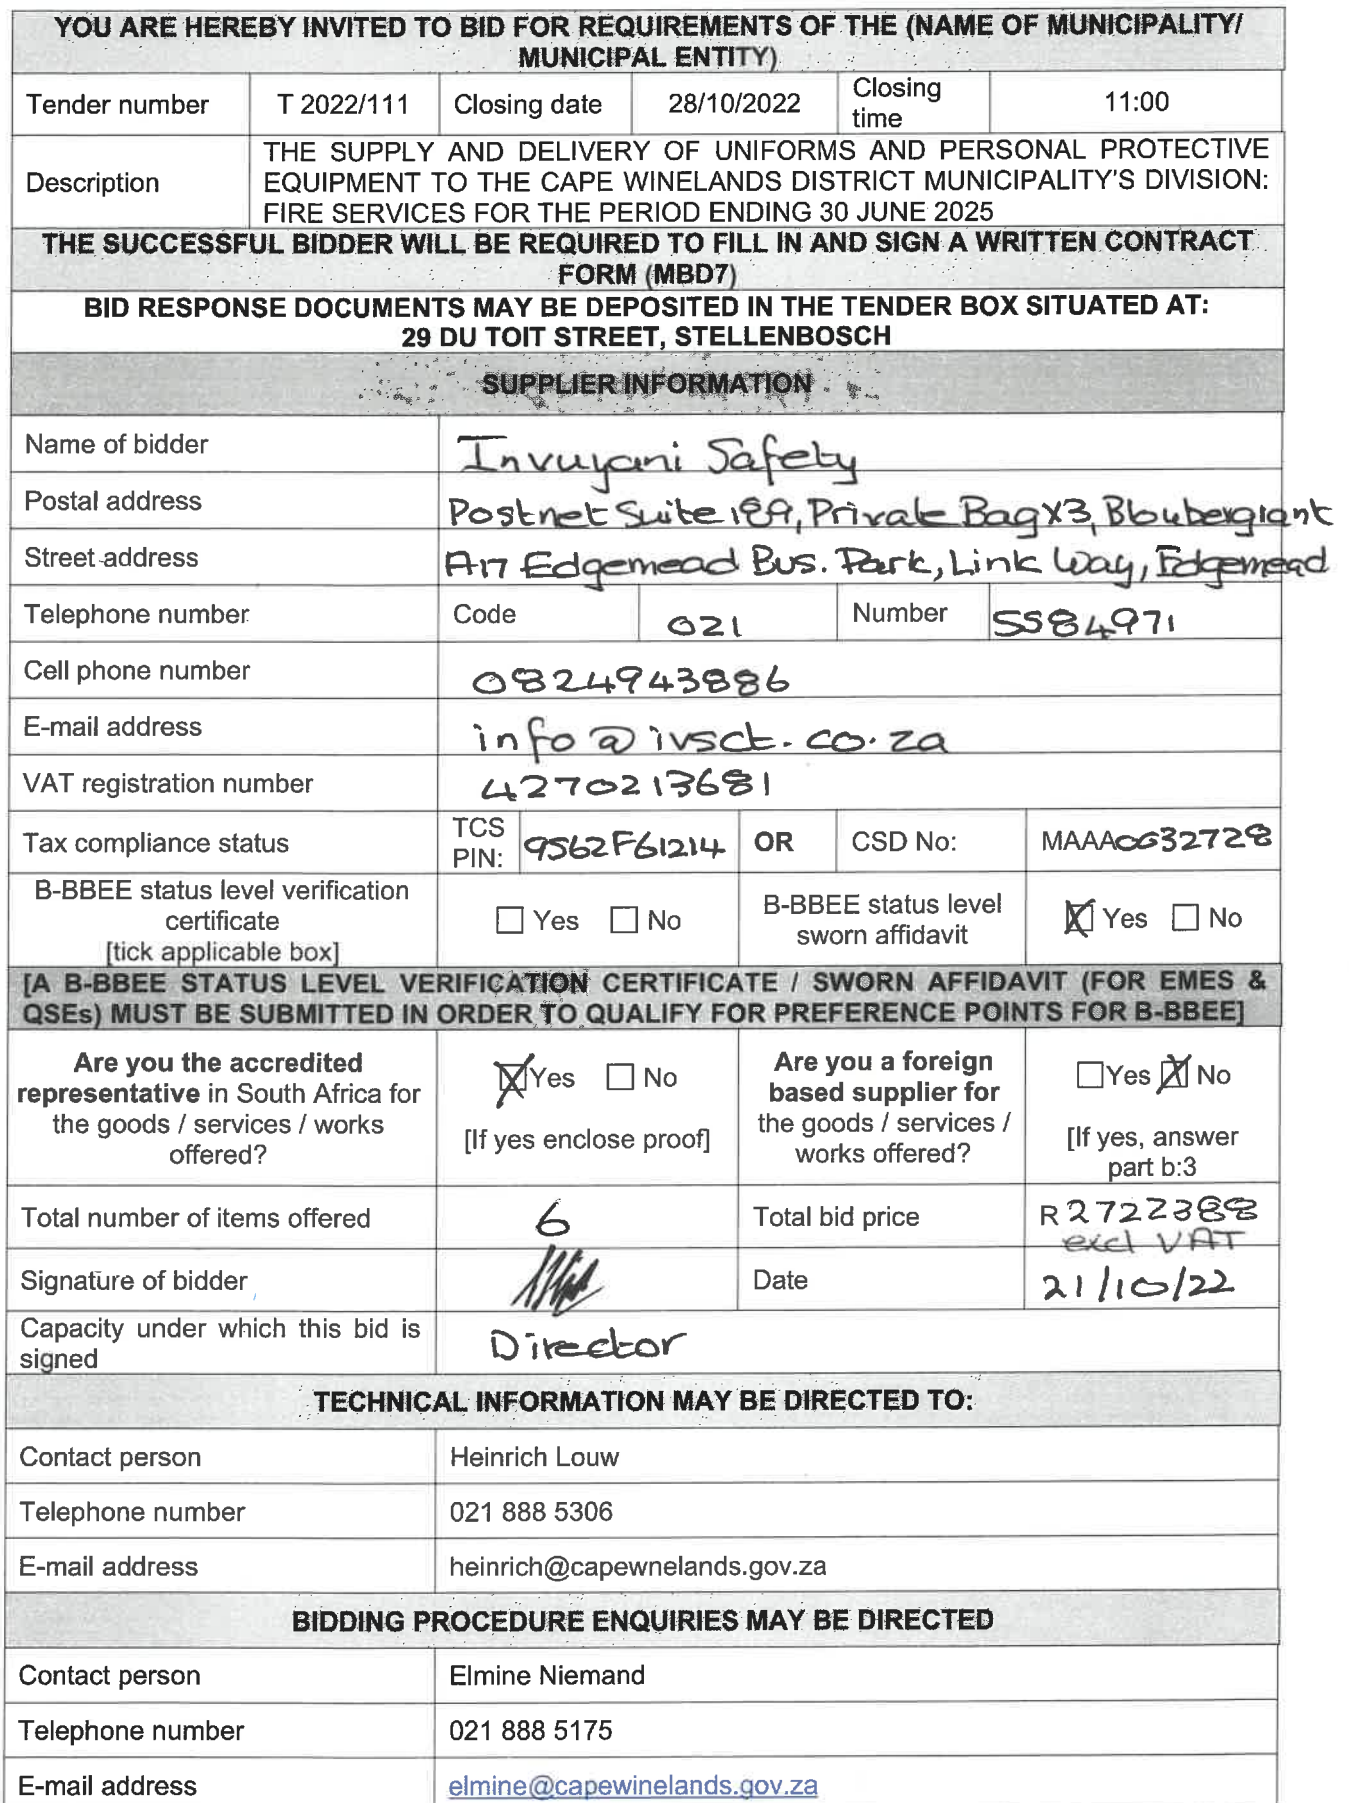 YOU ARE HEREBY INVITED TO BID FOR REQUIREMENTS OF THE (NAME OF MUNICIPALITY/
MUNICIPAL ENTITY)
Tender number T 2022/111 Closing date 28/10/2022 Closing time 11:00
Description
THE SUPPLY AND DELIVERY OF UNIFORMS AND PERSONAL PROTECTIVE
EQUIPMENT TO THE CAPE WINELANDS DISTRICT MUNICIPALITY'S DIVISION:
FIRE SERVICES FOR THE PERIOD ENDING 30 JUNE 2025
THE SUCCESSFUL BIDDER WILL BE REQUIRED TO FILL IN AND SIGN A WRITTEN CONTRACT
FORM (MBD7)
BID RESPONSE DOCUMENTS MAY BE DEPOSITED IN THE TENDER BOX SITUATED AT:
29 DU TOIT STREET, STELLENBOSCH
SUPPLIER INFORMATION
Name of bidder Invuyani Safety
Postal address Postnet Suite 189, Private Bag X3, Bloubergrant
Street address A17 Edgemead Bus. Park, Link Way, Edgemead
Telephone number Code 021 Number 5584971
Cell phone number 0824943886
E-mail address info@ivsct.co.za
VAT registration number 4270213681
Tax compliance status TCS PIN: 9562F61214 OR CSD No: MAAA0632728
B-BBEE status level verification
certificate
[tick applicable box]
☐ Yes ☐ No
B-BBEE status level
sworn affidavit
☒ Yes ☐ No
[A B-BBEE STATUS LEVEL VERIFICATION CERTIFICATE / SWORN AFFIDAVIT (FOR EMES &
QSEs) MUST BE SUBMITTED IN ORDER TO QUALIFY FOR PREFERENCE POINTS FOR B-BBEE]
Are you the accredited
representative in South Africa for
the goods / services / works
offered?
☒ Yes ☐ No
[If yes enclose proof]
Are you a foreign
based supplier for
the goods / services /
works offered?
☐ Yes ☒ No
[If yes, answer
part b:3
Total number of items offered 6 Total bid price R 2722388
excl VAT
Signature of bidder Date 21/10/22
Capacity under which this bid is
signed
Director
TECHNICAL INFORMATION MAY BE DIRECTED TO:
Contact person Heinrich Louw
Telephone number 021 888 5306
E-mail address heinrich@capewnelands.gov.za
BIDDING PROCEDURE ENQUIRIES MAY BE DIRECTED
Contact person Elmine Niemand
Telephone number 021 888 5175
E-mail address elmine@capewinelands.gov.za